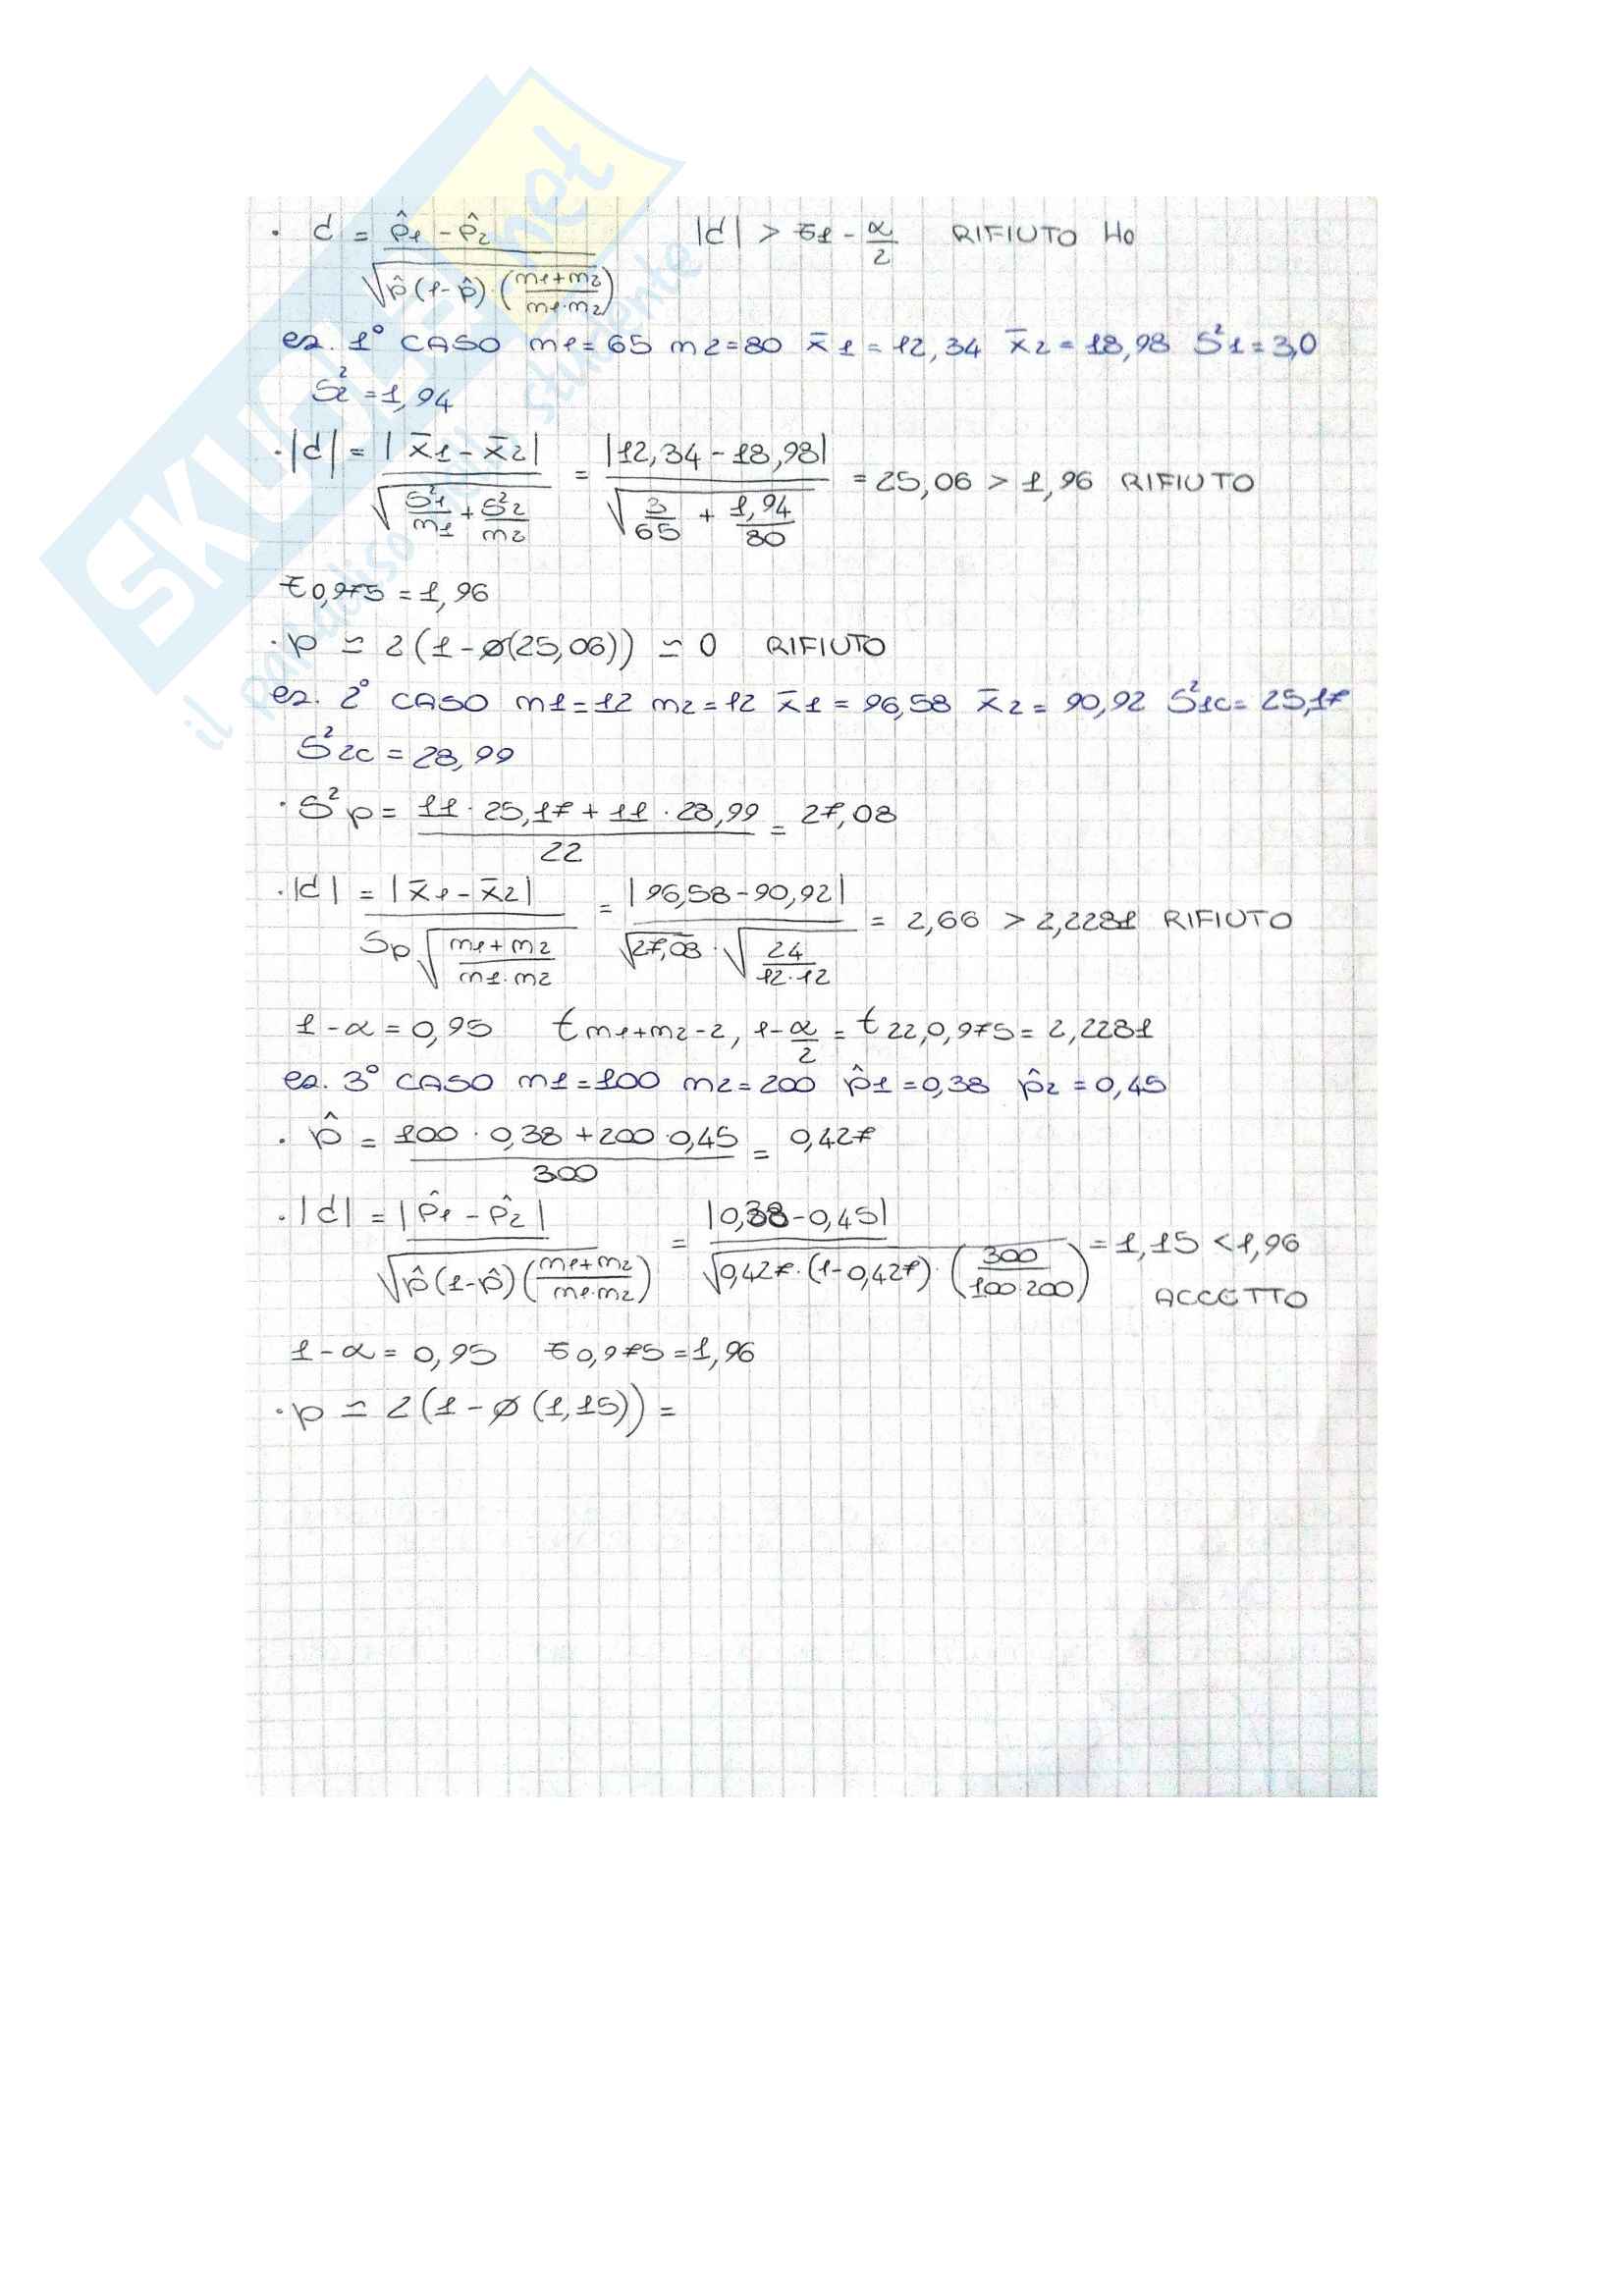 · d = p̂1 - p̂2 / √(p̂(1-p̂)·(m1+m2 / m1·m2))   |d| > z1 - α/2   RIFIUTO H0
es. 1° CASO m1 = 65 m2 = 80 x̄1 = 12,34 x̄2 = 18,98 S²1 = 3,0
S²2 = 1,94
· |d| = |x̄1 - x̄2| / √(S²1/m1 + S²2/m2) = |12,34 - 18,98| / √(3/65 + 1,94/80) = 25,06 > 1,96 RIFIUTO
z0,975 = 1,96
· p ≃ 2(1 - ø(25,06)) ≃ 0 RIFIUTO
es. 2° CASO m1 = 12 m2 = 12 x̄1 = 96,58 x̄2 = 90,92 S²1c = 25,17
S²2c = 28,99
· S²p = 11 · 25,17 + 11 · 28,99 / 22 = 27,08
· |d| = |x̄1 - x̄2| / Sp √(m1+m2 / m1·m2) = |96,58 - 90,92| / √27,08 · √(24 / 12·12) = 2,66 > 2,2281 RIFIUTO
1 - α = 0,95   t m1+m2-2, 1-α/2 = t 22,0,975 = 2,2281
es. 3° CASO m1 = 100 m2 = 200 p̂1 = 0,38 p̂2 = 0,45
· p̂ = 100 · 0,38 + 200 · 0,45 / 300 = 0,427
· |d| = |p̂1 - p̂2| / √(p̂(1-p̂)(m1+m2 / m1·m2)) = |0,38 - 0,45| / √(0,427·(1-0,427)·(300 / 100·200)) = 1,15 < 1,96
ACCETTO
1 - α = 0,95   z0,975 = 1,96
· p ≃ 2(1 - ø(1,15)) =
SKUOLA.net
il paradiso dello studente